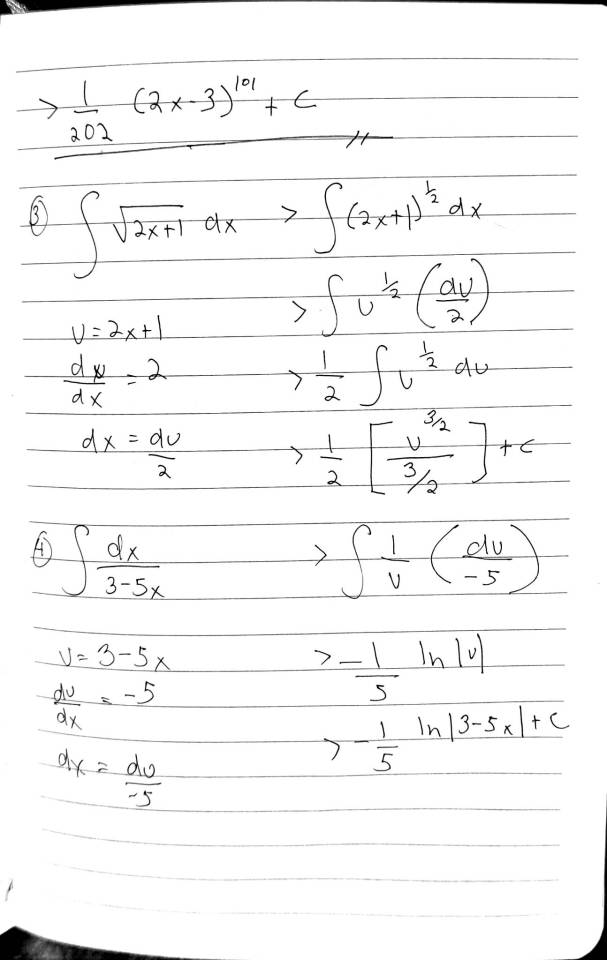 > 1/202 (2x-3)^101 + C
③ ∫ √(2x+1) dx > ∫ (2x+1)^(1/2) dx
> ∫ u^(1/2) (du/2)
u = 2x+1
du/dx = 2 > 1/2 ∫ u^(1/2) du
dx = du/2 > 1/2 [ u^(3/2) / (3/2) ] + c
④ ∫ dx/(3-5x) > ∫ 1/u (du/-5)
u = 3-5x > -1/5 ln |u|
du/dx = -5
> -1/5 ln |3-5x| + C
dx = du/-5